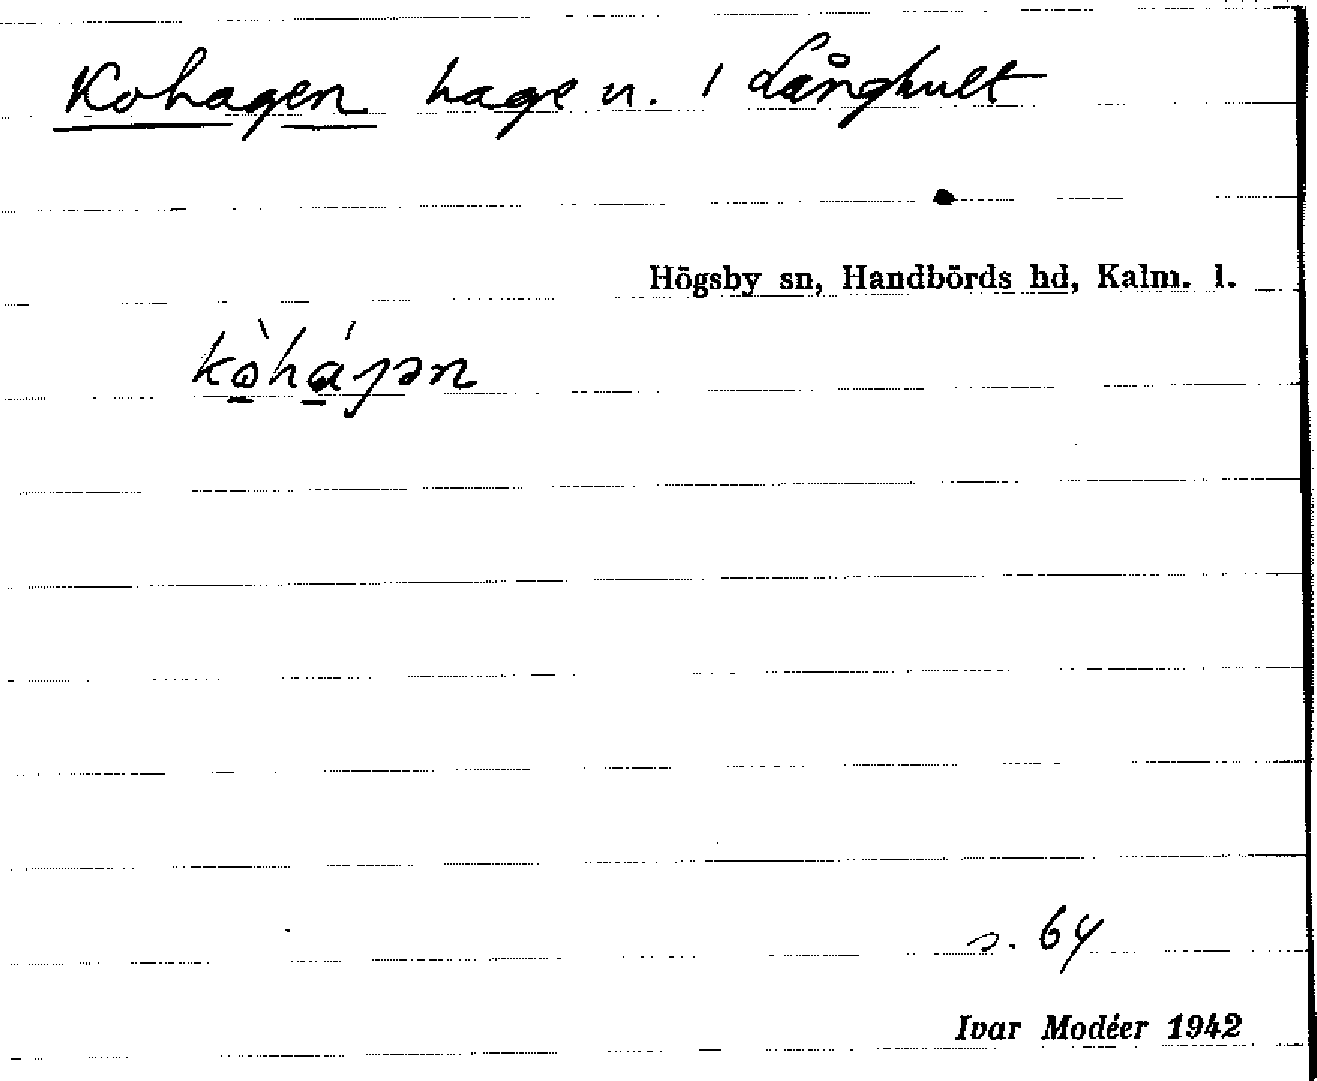 Kohagen hage n. i Långhult
Högsby sn, Handbörds hd, Kalm. l.
s. 64
Ivar Modéer 1942